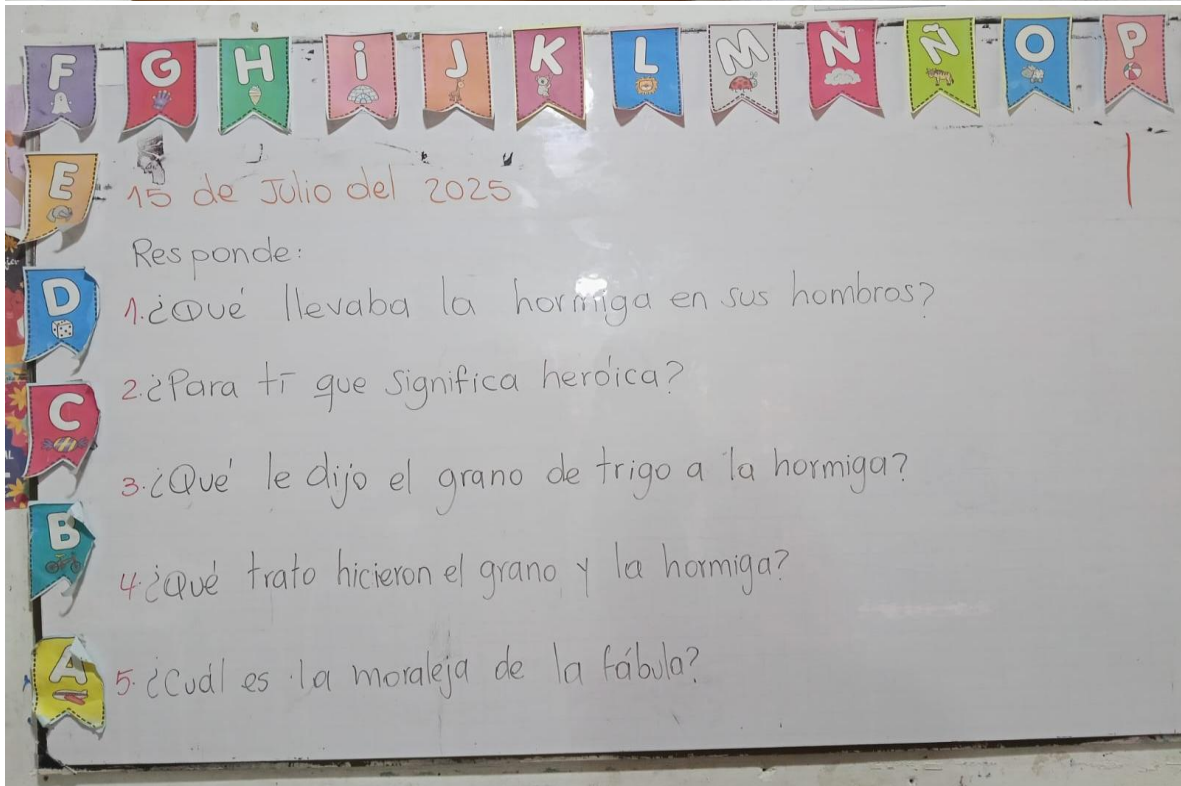 F G H i J K L M N Ñ O P
E
15 de Julio del 2025
Responde:
D
1. ¿Qué llevaba la hormiga en sus hombros?
2. ¿Para tí que significa heróica?
C
3. ¿Qué le dijo el grano de trigo a la hormiga?
B
4. ¿Qué trato hicieron el grano y la hormiga?
A
5. ¿Cuál es la moraleja de la fábula?